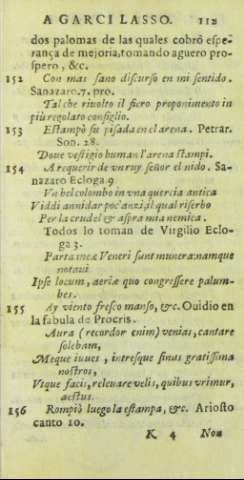 A GARCI LASSO. 112
dos palomas de las quales cobró espe-
rança de mejoria, tomando aguero pro-
spero, &c.
152 Con mas sano discurso en mi sentido.
Sanazaro. 7. pro.
Tal che riuolto il ficro proponimento in
più regolato consiglio.
153 Estampò su pisada en el arena. Petrar.
Son. 28.
Doue vestigio human l'arena stampi.
154 A requerir de vn ruyseñor el nido. Sa-
nazaro Ecloga 9.
Vn bel colombo in vna quercia antica
Viddi annidar poc'anzi, il qual riserbo
Per la crudel & aspra mia nemica.
Todos lo toman de Virgilio Eclo-
ga 3.
Parta meæ Veneri sunt munera: namque
notaui
Ipse locum, aeriæ quo congessere palum-
bes.
155 Ay viento fresco manso, &c. Ouidio en
la fabula de Procris.
Aura (recordor enim) venias, cantare
solebam,
Meque iuues, intresque sinus gratissima
nostros,
Vtque facis, releuare velis, quibus vrimur,
aestus.
156 Rompiò luego la estampa, &c. Ariosto
canto 10.
K 4 Non